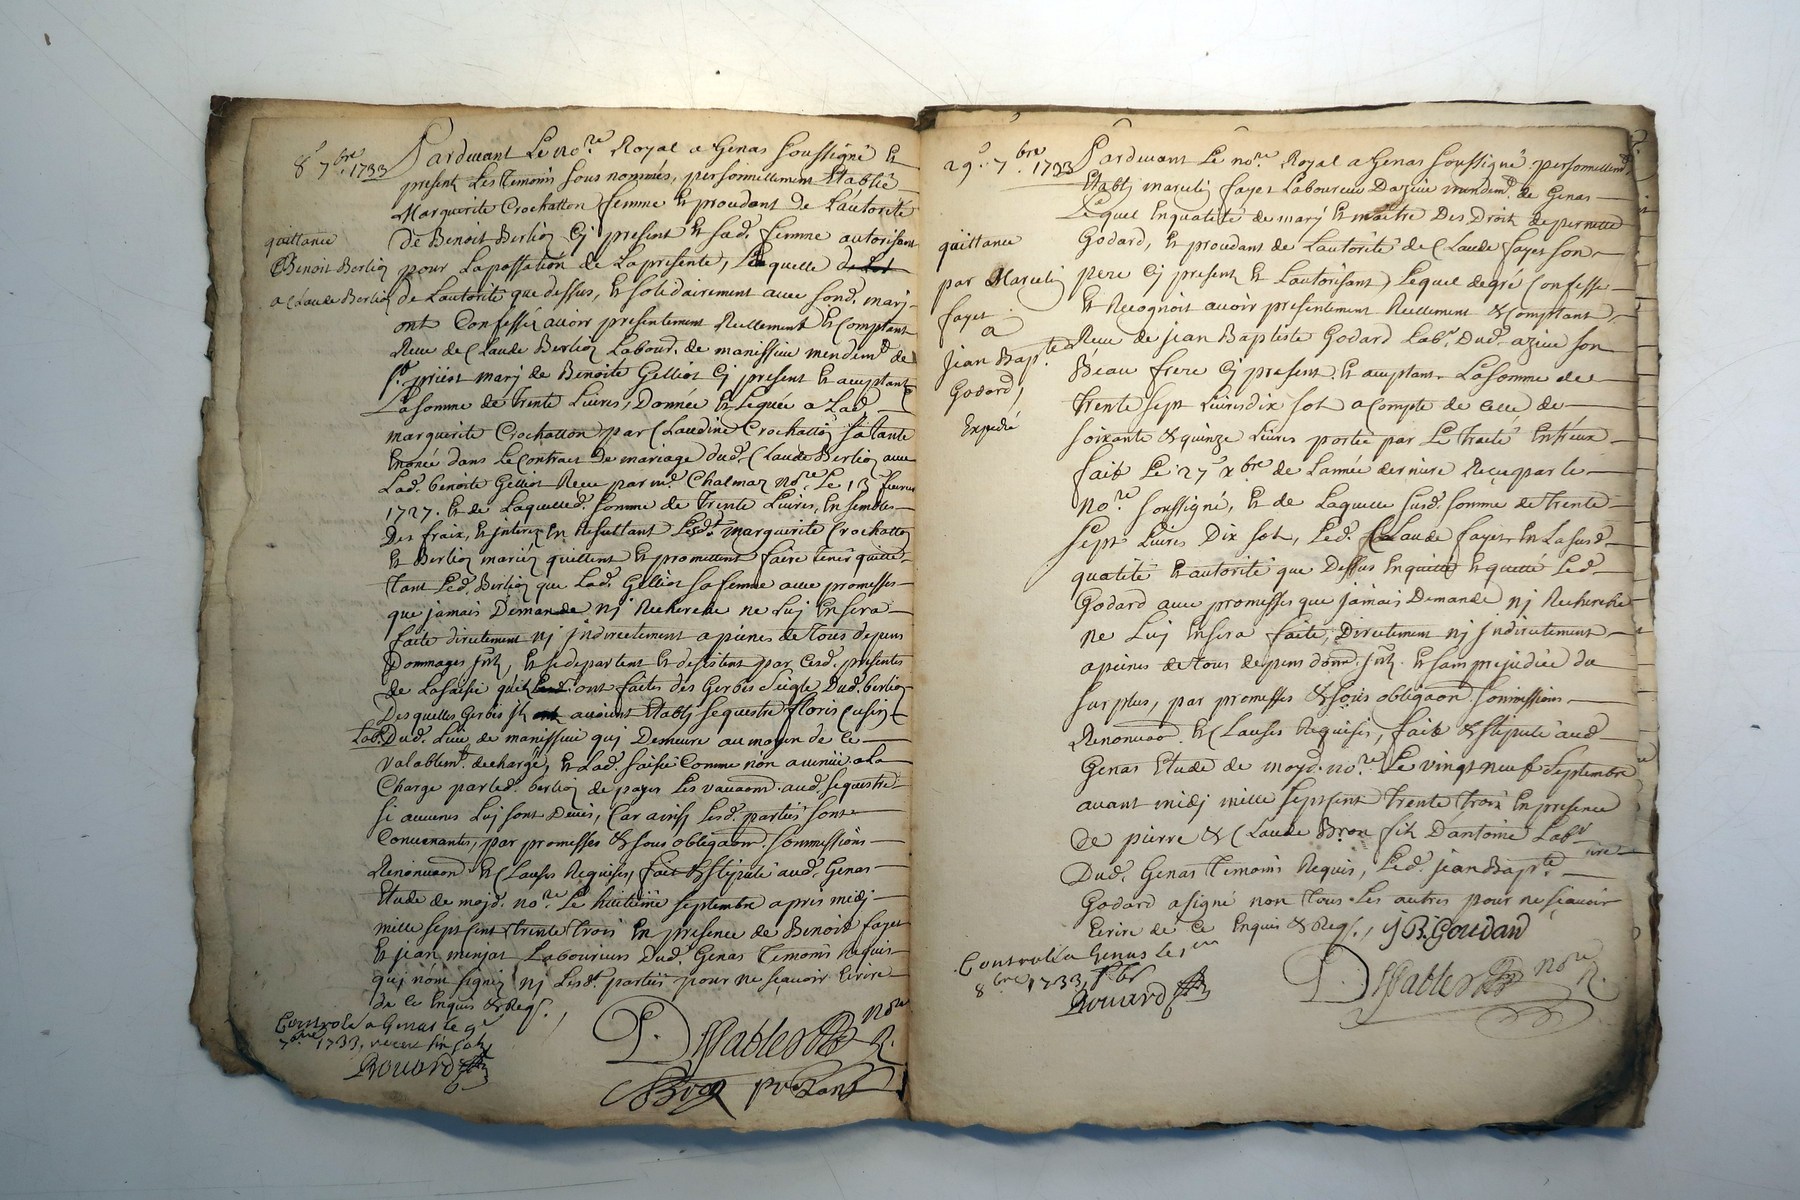 8e 7bre 1733
quittance
Benoit Berlioz
a Claude Berlioz
Pardevant Le nore Royal a Genas Soussigné Et
present Les Temoins Sous nommés, personnellement Etablie
Marguerite Crochatton femme Et proudant de Lautorité
De Benoit Berlioz Cy present Et sad. femme autorisant
pour Lapassation de Lapresente, Laquelle
de Lautorité que dessus, Et solidairement avec sond. marj
ont Confessé avoir presentement Reellement Et Comptant
Receu de Claude Berlioz Labour. de manissieu mendemt de
St priest marj de Benoite Gelliot Cy present Et acceptant
La somme de Trente Livres, Donnée Et Leguée a Lad.
marguerite Crochatton par Claudine Crochatton sa tante
Enoncée dans Le Contract De mariage dud. Claude Berlioz avec
Lad. benoite Gelliot Receu par me Chalmaz nore Le 13e fevrier
1727. Et de Laquelled. somme de Trente Livres, Ensembles
Des fraix, Et interez En Resultant Lesdt marguerite Crochatton
Et Berlioz mariéz quittent Et promettent faire tenir quitte
Tant Led. Berlioz que Lad. Gelliot sa femme avec promesses
que jamais Demande nj Recherche ne Luj En sera
faite directement nj Indirectement a peines de Tous depens
Dommages Jnts, Et se departent Et desistent par Cesd. presentes
de La saisie qu'ils ont faites des Gerbes seigle Dud. berlioz
Desquelles Gerbes Jls avoient Etablj sequestre floris Cusin
Lab. Dud. Lieu de manissieu quj Demeure au moyen de ce
valablemt. dechargé, Et Lad. saisie Comme non avenüe a La
Charge par led. berlioz de payer Les vacaons. aud. sequestre
si aucunes Luj sont Deües, Car ainsj Lesd. parties sont
Convenantes, par promesses & sous obligaons. sommissions
Renonciaons Et Clauses Requises, fait & stipulé aud. Genas
Etude de moyd. nore Le huitiéme septembre apres midj
mille sept Cent Trente Trois En presence de Benoit fayet
Et jean minjat Laboureurs Dud. Genas Temoins Requis
quj nont signéz nj Lesdt parties pour ne sçavoir Ecrire
de ce Enquis & Reqs.
Controlé a Genas le 9e
7bre 1733, receu six sols
Rouard
nore
R.
29e 7bre 1733
quittance
par Marcelin
fayet
a
Jean Bapte
Godard,
Expedié
Pardevant Le nore Royal a Genas soussigné personnellemt
Etablj marcelin fayet Laboureur Dazieu mendemt de Genas
Lequel En qualité de marj Et maitre Des Droits de pernette
Godard, Et proudant de Lautorité de Claude fayet son
pere Cj present Et Lautorisant, Lequel de gré Confesse
Et Recognoit avoir presentement Reellement & Comptant
Receu de jean Baptiste Godard Labr. Dud. azieu son
Beau frere Cj present Et acceptant La somme de
Trente sept Livres dix sols a Compte de Celle de
soixante & quinze Livres portée par Le Traité Entreux
fait Le 27e xbre de Lannée derniere Receu par le
Nore soussigné, Et de Laquelle susd. somme de Trente
Sept Livres Dix sols, Led. Claude fayet En La susd.
qualité Et autorité que Dessus En quitte Et quitté Led.
Godard avec promesses que jamais Demande nj Recherche
ne Luj En sera faite, Directement nj Indirectement
a peines de tous depens dom. Jnts. Et sans prejudice du
surplus, par promesses & sous obligaons sommissions
Renonciaons. Et Clauses Requises, fait & stipulé aud.
Genas Etude de moyd. nore Le vingt neuf septembre
avant midj mille sept Cent Trente Trois En presence
De pierre & Claude Bron fils D'antoine Labr
Dud. Genas Temoins Requis, Led. jean Bapte
Godard a signé non Tous Les autres pour ne sçavoir
Ecrire de ce Enquis & Reqs., j B. Goudard
Controlé a Genas le 1er
8bre 1733,
Rouard
nore
R.